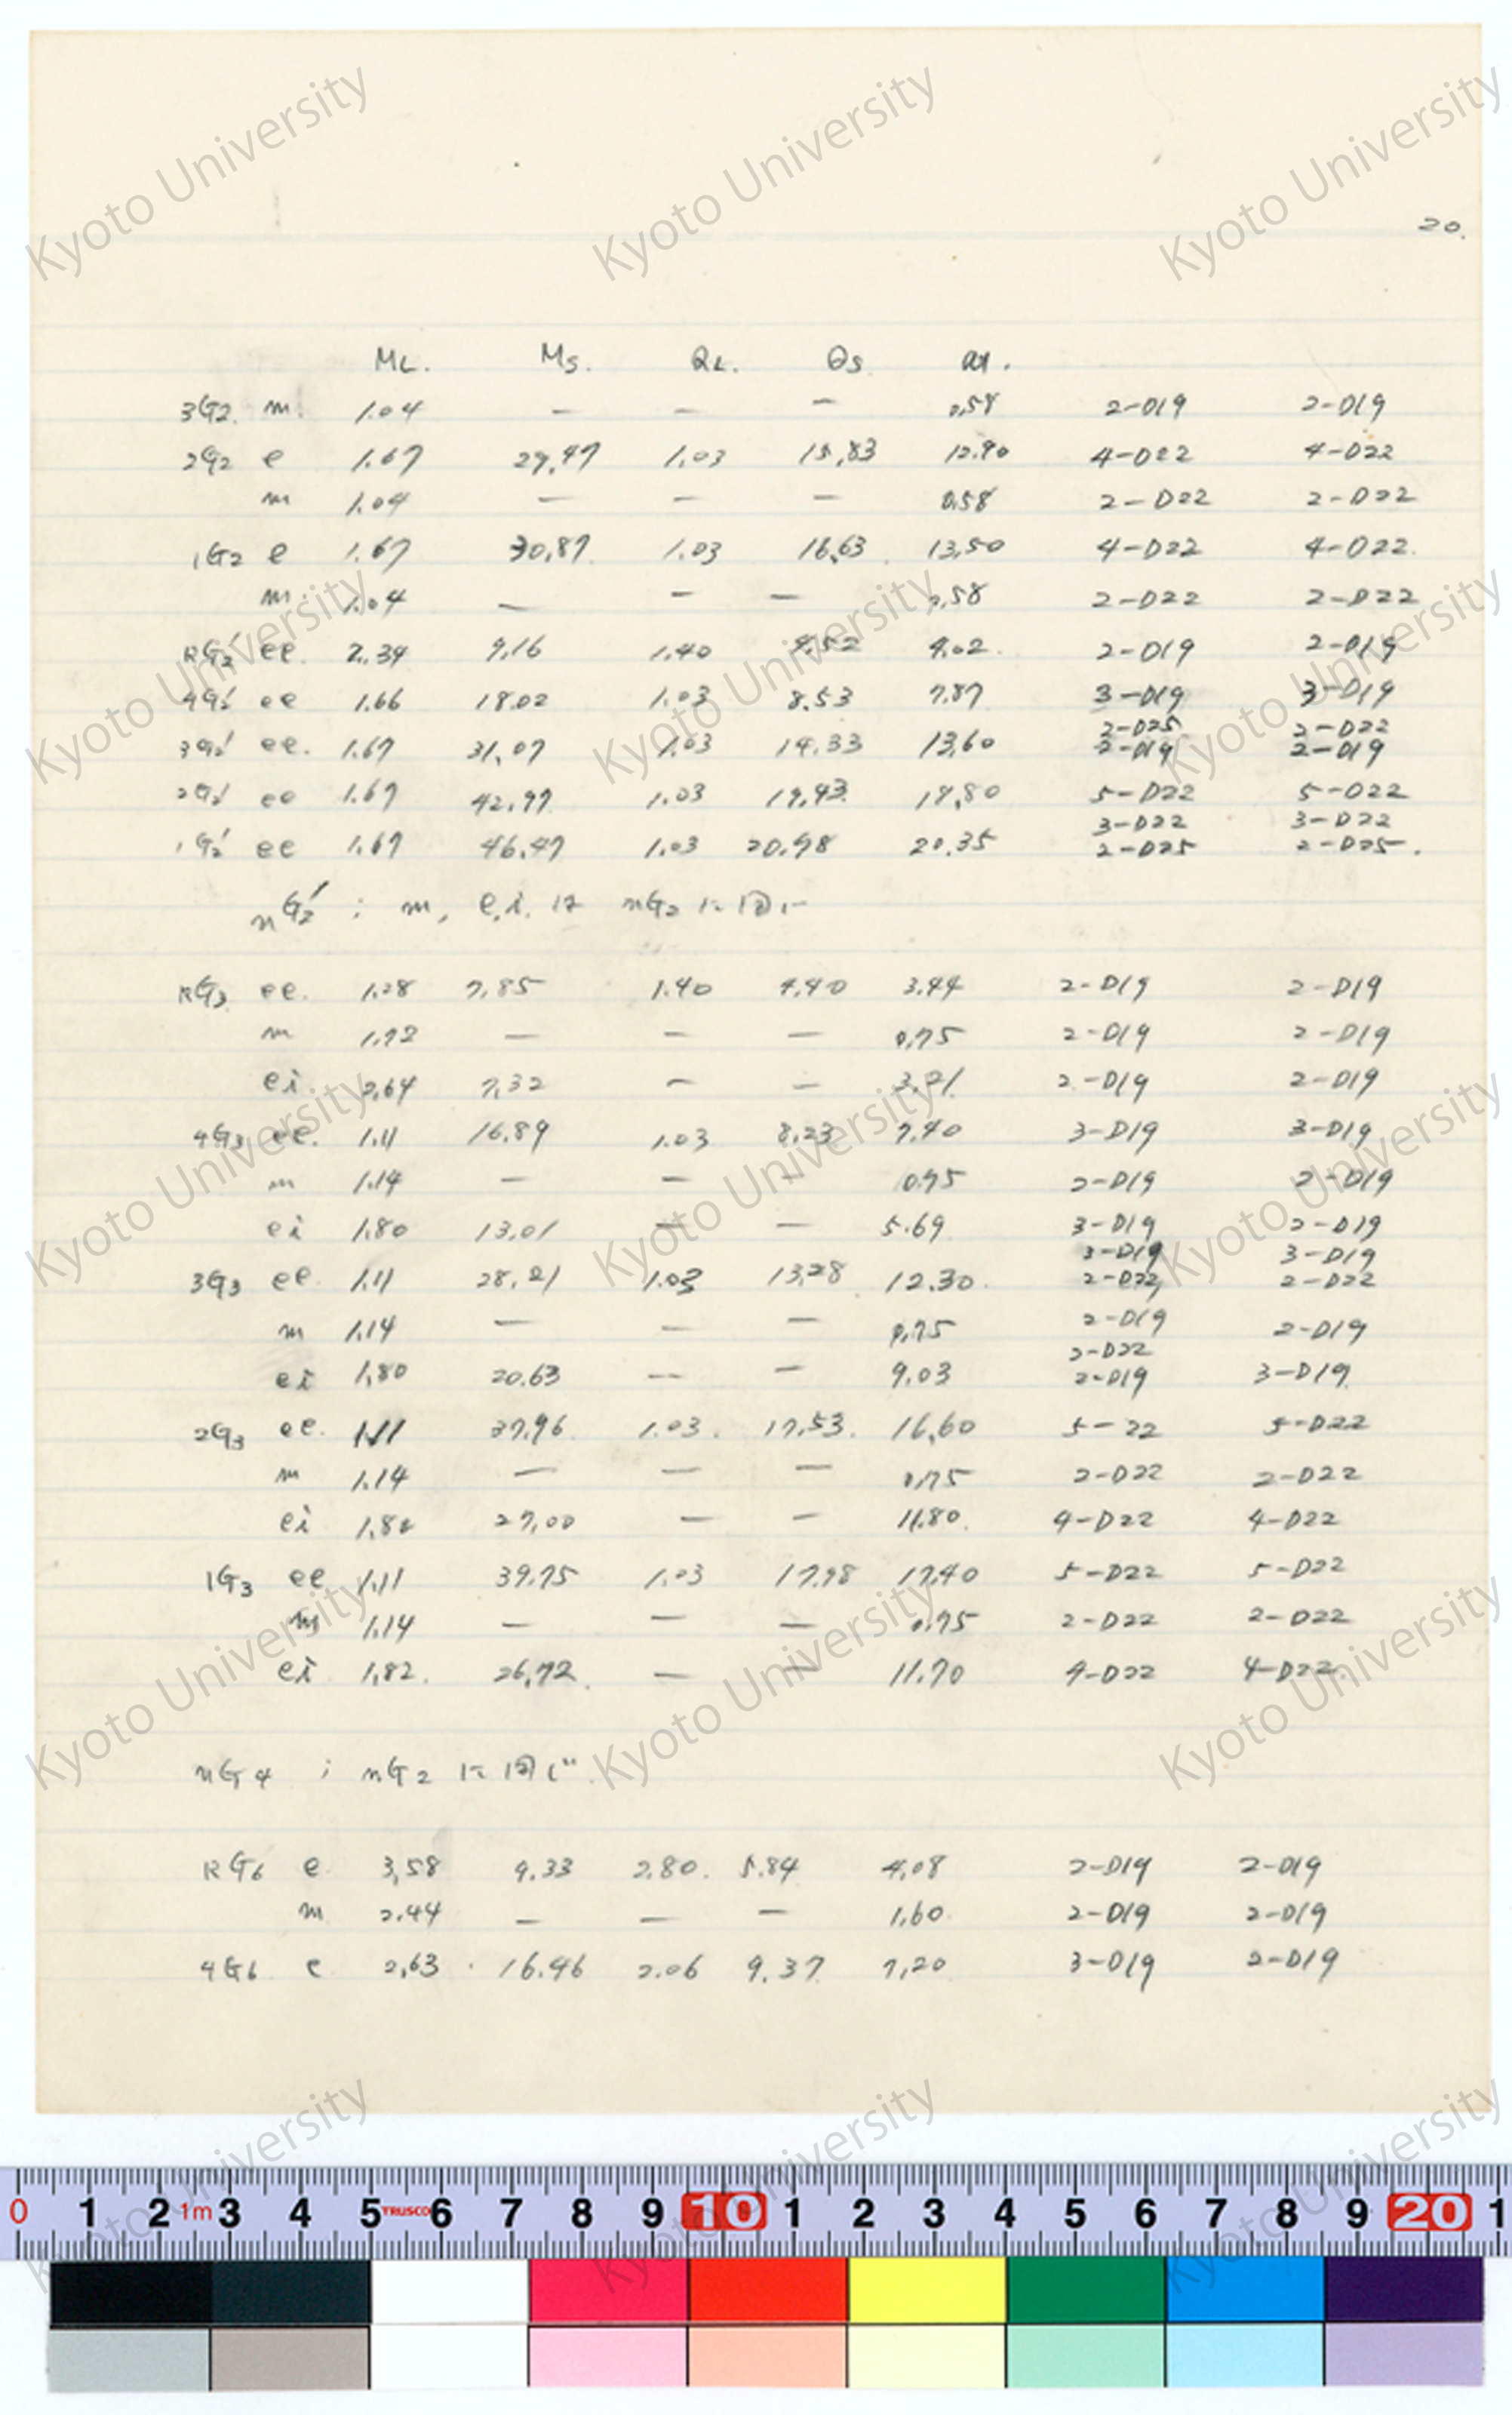 20.
ML. Ms. QL. Qs at.
3G2. m. 1.04 — — — 0.58 2-D19 2-D19
2G2 e 1.67 29.47 1.03 15.83 12.90 4-D22 4-D22
m 1.04 — — — 0.58 2-D22 2-D22
1G2 e 1.67 30.87. 1.03 16.63. 13.50 4-D22 4-D22.
m. 1.04 — — — 0.58 2-D22 2-D22
RG2′ ee. 2.34 9.16 1.40 4.52 4.02. 2-D19 2-D19
4G2′ ee 1.66 18.02 1.03 8.53 7.87 3-D19 3-D19
2-D25 2-D22
3G2′ ee. 1.67 31.07 1.03 14.33 13.60 2-D19 2-D19
2G2′ ee 1.67 42.97 1.03 19.93 18.80 5-D22 5-D22
3-D22 3-D22
1G2′ ee 1.67 46.47 1.03 20.98 20.35 2-D25 2-D25.
nG2′ ; m, e.i. は nG2 に同じ
RG3 ee. 1.28 7.85 1.40 4.40 3.44 2-D19 2-D19
m 1.72 — — — 0.75 2-D19 2-D19
ei. 2.64 7.32 — — 3.21. 2-D19 2-D19
4G3 ee. 1.11 16.89 1.03 8.23 7.40 3-D19 3-D19
m 1.14 — — — 0.75 2-D19 2-D19
ei 1.80 13.01 — — 5.69 3-D19 2-D19
3-D19 3-D19
3G3 ee. 1.11 28.21 1.03 13.28 12.30. 2-D22 2-D22
m 1.14 — — — 0.75 2-D19 2-D19
2-D22
ei 1.80 20.63 — — 9.03 2-D19 3-D19
2G3 ee. 1.11 37.96. 1.03. 17.53. 16.60 5-22 5-D22
m 1.14 — — — 0.75 2-D22 2-D22
ei 1.80 27.00 — — 11.80. 4-D22 4-D22
1G3 ee 1.11 39.75 1.03 17.98 17.40 5-D22 5-D22
m 1.14 — — — 0.75 2-D22 2-D22
ei 1.82. 26.72. — — 11.70 4-D22 4-D22.
nG4 ; nG2 に同じ.
RG6 e. 3.58 9.33 2.80. 5.84 4.08 2-D19 2-D19
m 2.44 — — — 1.60. 2-D19 2-D19
4G6 e 2.63 16.46 2.06 9.37 7.20 3-D19 2-D19
Kyoto University
0 1 2 1m 3 4 5 TRUSCO 6 7 8 9 10 1 2 3 4 5 6 7 8 9 20 1